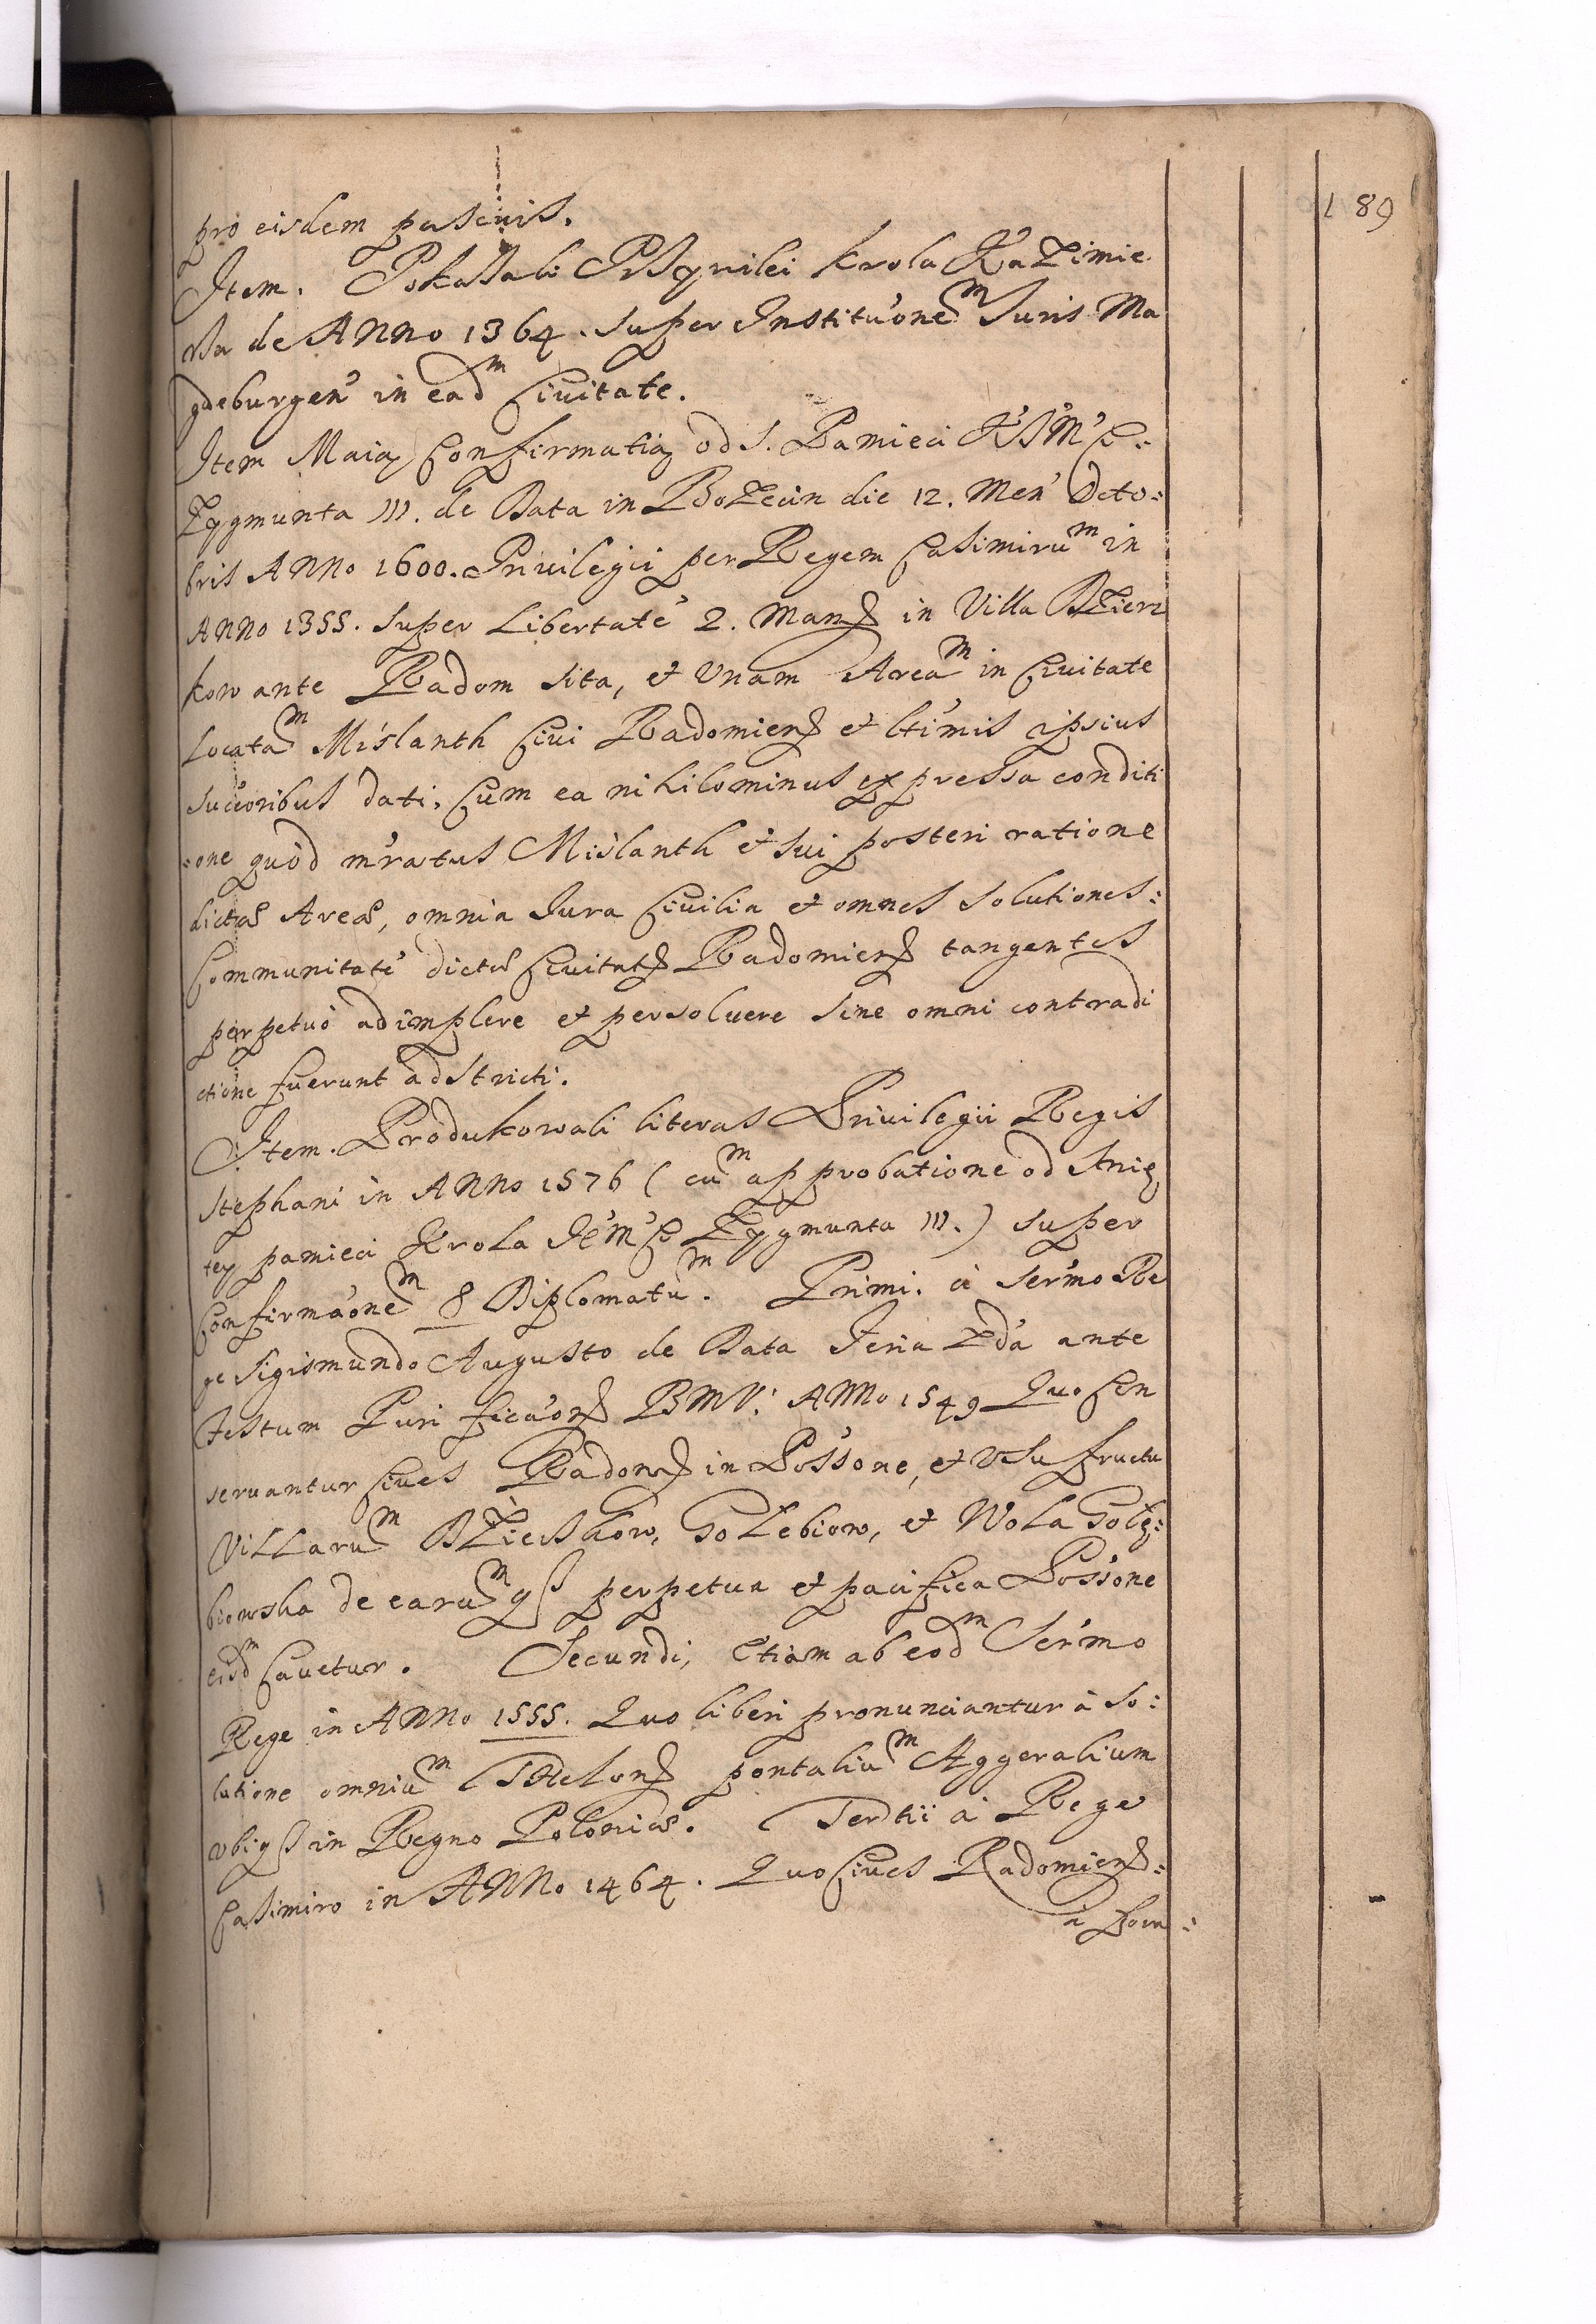 189
pro eisdem pascuis.
Item. Pokazali Przywilei Krola Kazimie
rza de Anno 1364. super Institu'onem Juris Ma
gdeburgen' in eadm Civitate.
Item Maią Confirmatią od S. Pamieci K'J'M'C:
Zygmunta III. de Data in Bozecin die 12. Men' Octo:
bris Anno 1600. Privilegii per Regem Casimirum in
Anno 1355. super Libertate' 2. Mans in Villa Dzierz
kow ante Radom sita, et Unam Aream in Civitate
Locatam Mislanth Civi Radomiens et Lti'mis ipsius
suc'oribus dati. Cum ea nihilominus expressa conditi
:one quòd m'ratus Mislanth et sui posteri ratione
dictæ Areæ, omnia Jura Civilia et omnes solutiones:
Communitate' dictæ Civitats Radomiens tangentes
perpetuò adimplere et persoluere sine omni contradi
ctione fuerunt adstricti.
Item. Produkowali literas Privilegii Regis
Stephani in Anno 1576 (cum approbatione od Snię
tey pamieci Krola Je'M'C Zygmunta III.) super
Confirma'onem 8 Diplomatum. Primi. à Ser'mo Re
ge Sigismundo Augusto de Data Feria 2da' ante
Festum Purifica'ons BMV: Anno 1549 Quo Con
seruantur Ciues Radoms in Pos'sone, et Usufructu
Villarum Dzierzkow, Golebiow, et Wola Golę:
biowska de earumq perpetua et pacifica Pos'sone
eisdm Cauetur. Secundi, Etiam ab eodm Ser'mo
Rege in Anno 1555. Quo liberi pronunciantur à so:
lutione omnium Thelons pontalium Aggeralium
vbiq in Regno Poloniæ. Tertii à Rege
Casimiro in Anno 1464. Quo Ciues Radomiens:
à